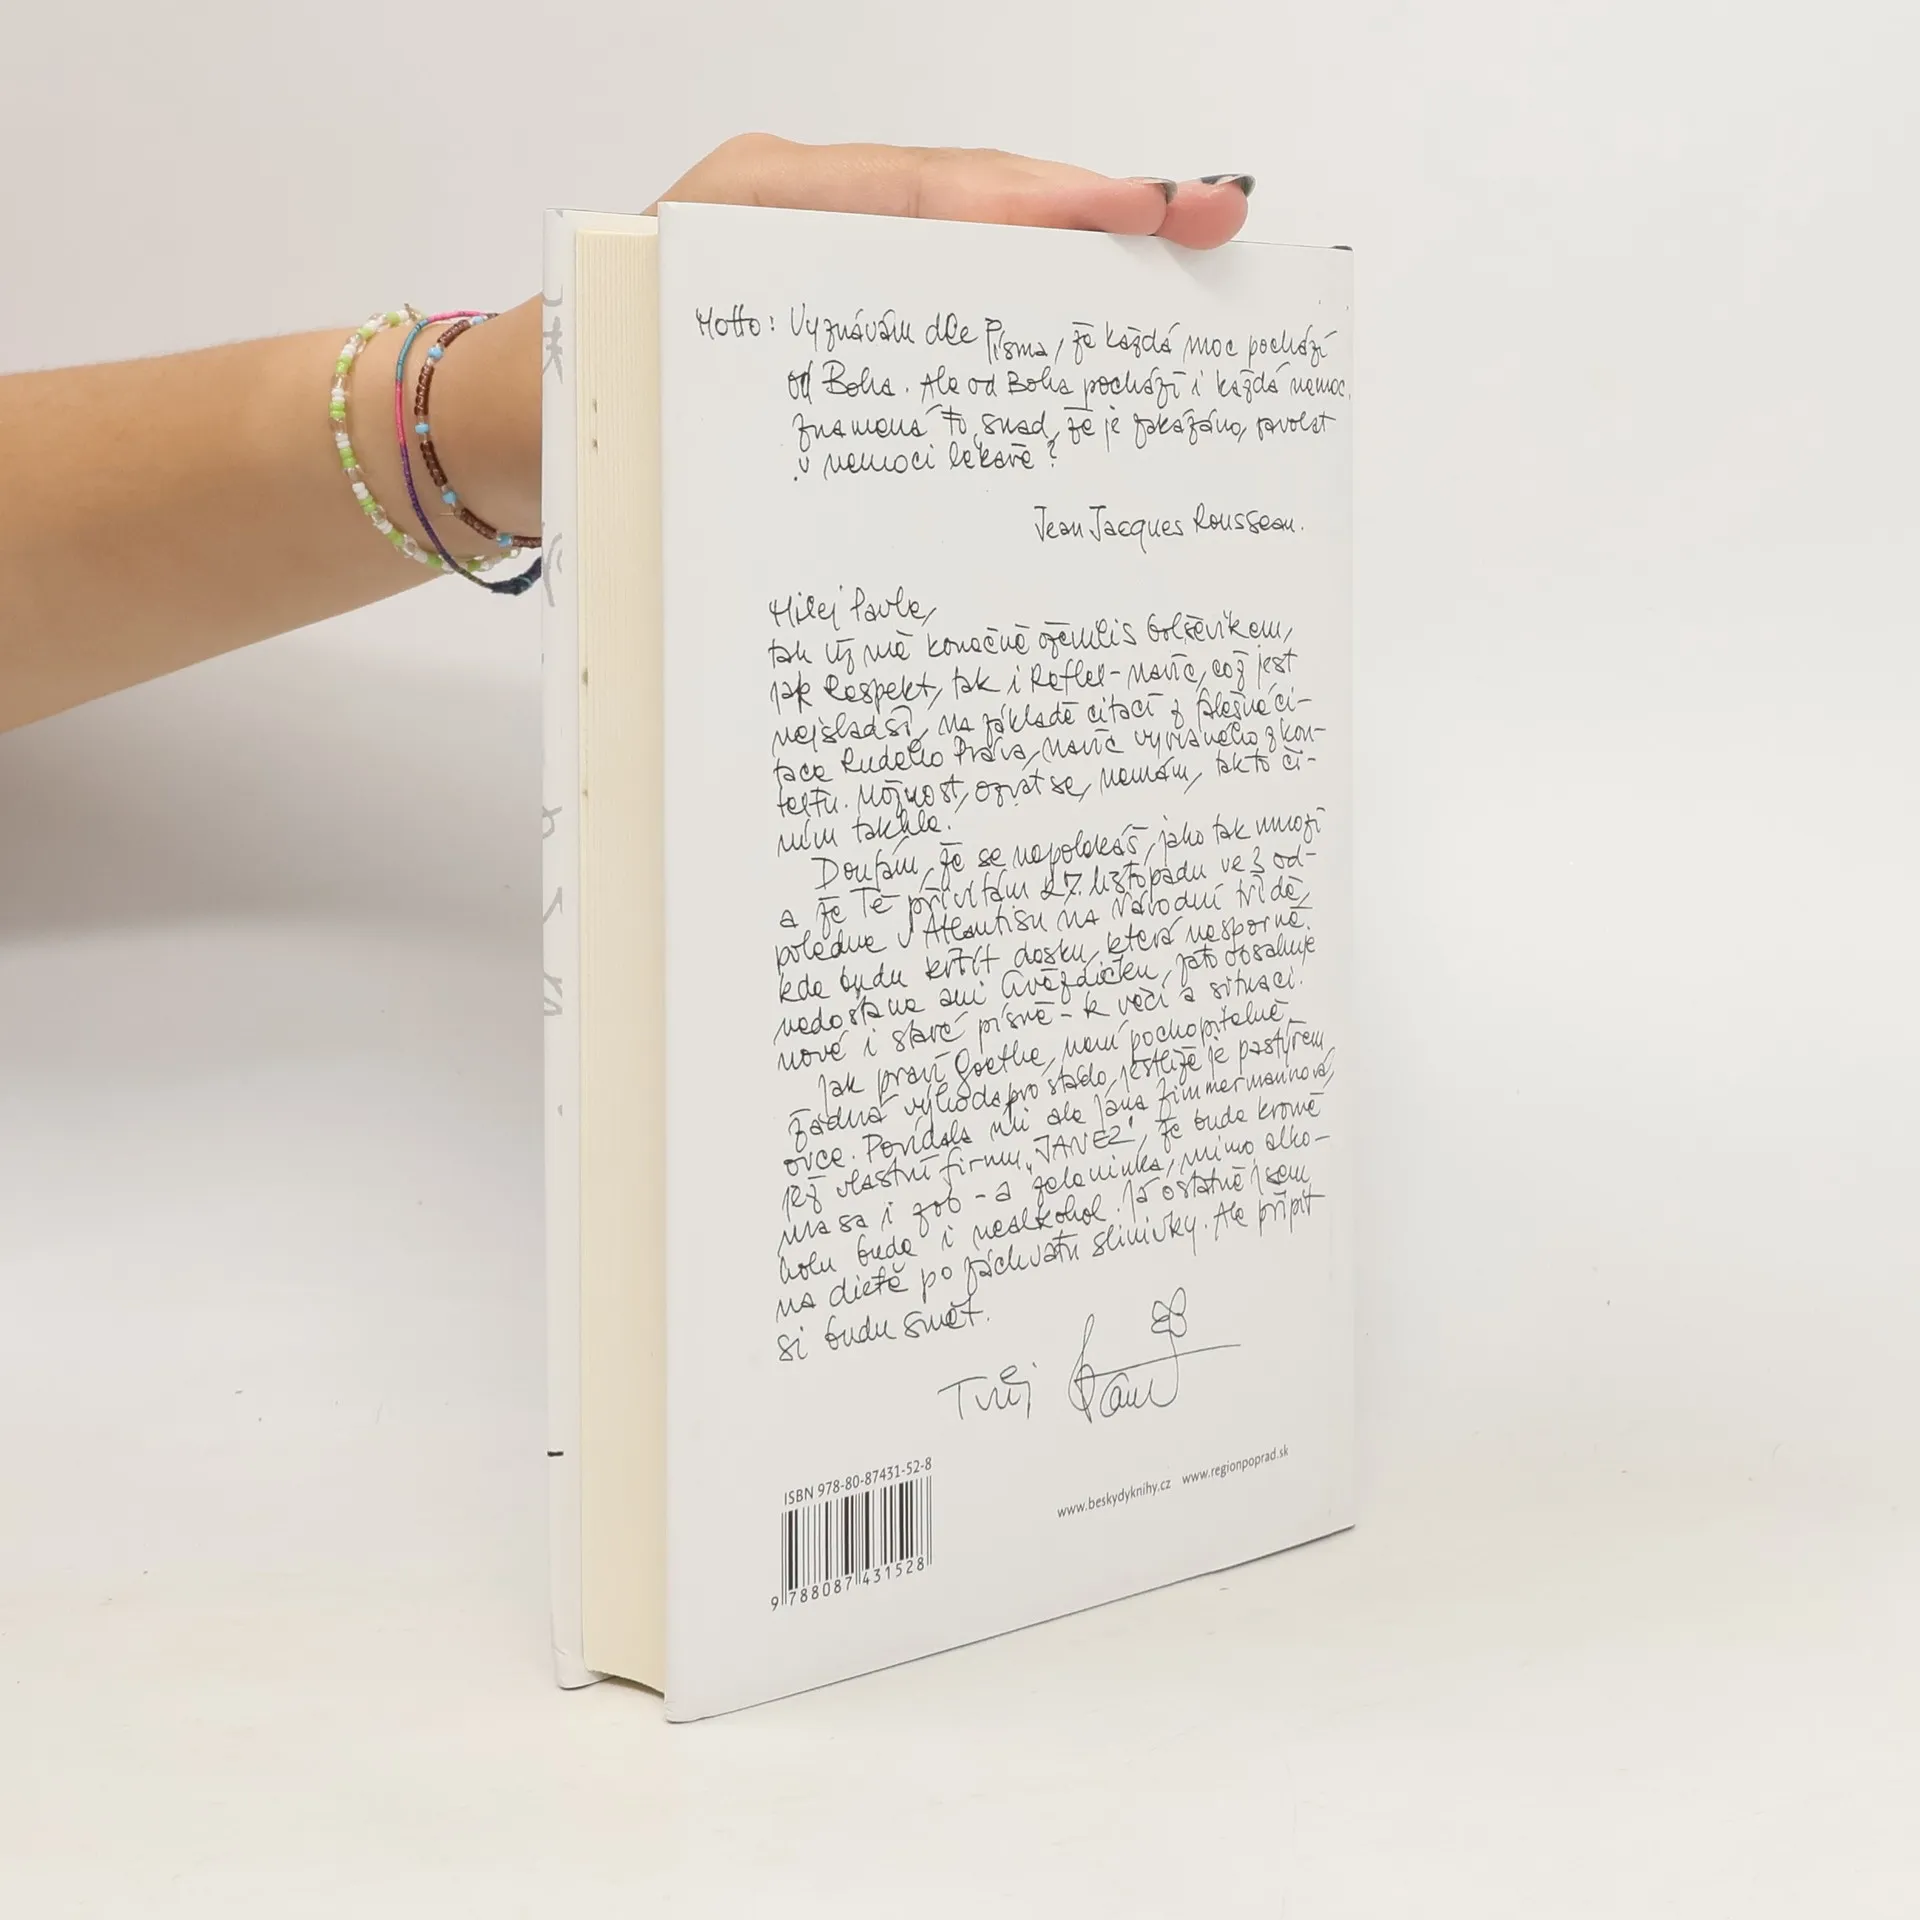 Motto: Vyznávám dle Písma, že každá moc pochází
od Boha. Ale od Boha pochází i každá nemoc.
znamená to snad, že je zakázáno, zavolat
v nemoci lékaře?
Jean Jacques Rousseau.
Milej Pavle,
tak už mě konečně ožemlis bolševikem,
jak Respekt, tak i Reflex - navíc, což jest
nejsladší, na základě citací z plesnéci-
tace Rudého Práva, navíc vyrvaného z kon-
textu. Možnost, ozvat se, nemám, takto či-
ním takhle.
Doufám, že se nepolekáš, jako tak mnozí
a že Tě přivítám 27. listopadu ve 3 od-
poledne v Atlantisu na Národní třídě,
kde budu křtít desku, která nesporně
nedostane ani hvězdičku, jato obsahuje
nové i staré písně - k věci a situaci.
Jak praví Goethe, není pochopitelně
žádná výhoda pro stádo, jestliže je pastýřem
ovce. Povídala mi ale Jana Zimmermannová,
jež vlastní firmu „JANEZ", že bude kromě
masa i zob - a zeleninka, mimo alko-
holu bude i nealkohol. Já ostatně jsem
na dietě po záchvatu slinivky. Ale připít
si budu smět.
Tvůj
ISBN 978-80-87431-52-8
www.beskydyknihy.cz www.regionpoprad.sk
9 788087 431528